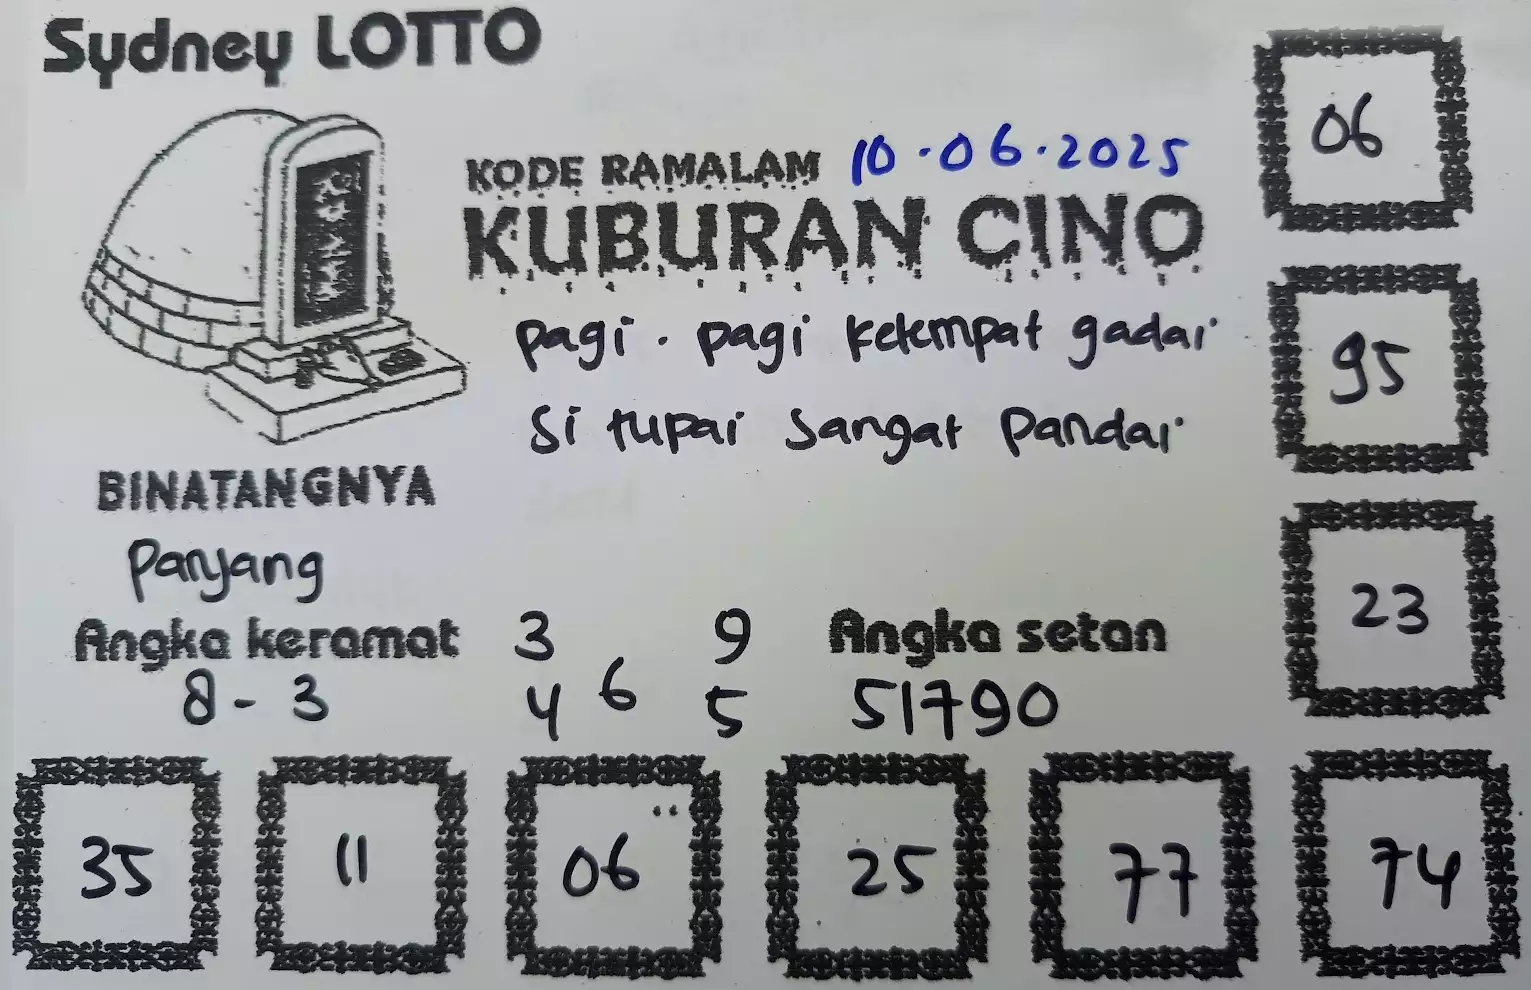 Sydney LOTTO
KODE RAMALAM 10.06.2025
KUBURAN CINO
pagi. pagi ketempat gadai
Si tupai sangat pandai
BINATANGNYA
Panjang
Angka keramat
8 - 3
3 9
6
4 5
Angka setan
51790
06
95
23
35 11 06 25 77 74